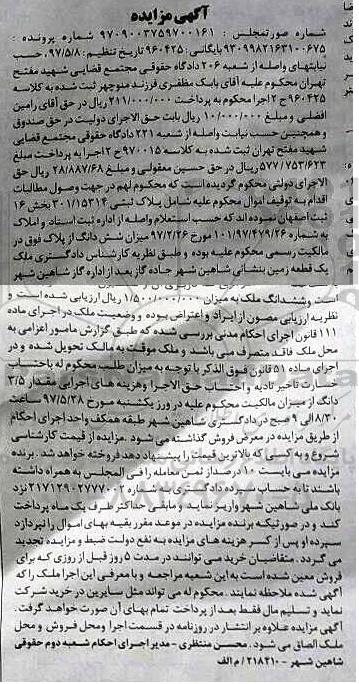 آگهی مزایده
شماره صورتمجلس: ۹۷۰۹۰۰۳۷۵۹۷۰۰۱۶۱ شماره پرونده:
۹۳۰۹۹۸۲۱۶۳۱۰۰۶۷۵ بایگانی: ۹۶۰۴۲۵ تاریخ تنظیم: ۹۷/۵/۸، حسب
نیابتهای واصله از شعبه ۲۰۶ دادگاه حقوقی مجتمع قضایی شهید مفتح
تهران محکوم علیه آقای بابک مظفری فرزند منوچهر ثبت شده به کلاسه
۹۶۰۴۲۵ ج ۲ اجرا محکوم به پرداخت ۲۱۱/۰۰۰/۰۰۰ ریال در حق آقای رامین
افضلی و مبلغ ۱۰/۰۰۰/۰۰۰ ریال بابت حق الاجرای دولیت در حق صندوق
و همچنین حسب نیابت واصله از شعبه ۲۲۱ دادگاه حقوقی مجتمع قضایی
شهید مفتح تهران ثبت شده به کلاسه ۹۷۰۰۱۵ ح ۲ اجرا به پرداخت مبلغ
۵۷۷/۷۵۳/۶۲۳ ریال در حق حسین معقولی و مبلغ ۲۸/۸۸۷/۶۸ ریال حق
الاجرای دولتی محکوم گردیده است که محکوم لهم در جهت وصول مطالبات
اقدام به توقیف اموال محکوم علیه شامل پلاک ثبتی ۳۰۱/۱۵۳۱۴ بخش ۱۶
ثبت اصفهان نموده اند که حسب استعلام واصله از اداره ثبت اسناد و املاک
به شماره ۱۰۱/۹۷/۴۷۹/۲۶ مورخ ۹۷/۲/۲۶ میزان شش دانگ از پلاک فوق در
مالکیت رسمی محکوم علیه بوده و طبق نظریه کارشناس دادگستری ملک
یک قطعه زمین بنشانی شاهین شهر جاده گاز بعد از اداره گاز شاهین شهر
است وششدانگ ملک به میزان ۱/۵۰۰/۰۰۰/۰۰۰ ریال ارزیابی شده است و
نظریه ارزیابی مصون از ایراد و اعتراض بوده و وضعیت ملک در اجرای ماده
۱۱۱ قانون اجرای احکام مدنی بررسی شده که طبق گزارش مامور اعزامی به
محل ملک فاقد متصرف می باشد و ملک موقت به مالک تحویل شده و در
اجرای ماده ۵۱ قانون فوق الذکر با توجه به میزان طلب محکوم له باحتساب
خسارت تاخیر تادیه و احتساب حق الاجرا وهزینه های اجرایی مقدار ۳/۵
دانگ از میزان مالکیت محکوم علیه در ورز یکشنبه مورخ ۹۷/۵/۲۸ ساعت
۸/۳۰ الی ۹ صبح در دادگستری شاهین شهر طبقه همکف واحد اجرای احکام
از طریق مزایده در معرض فروش گذاشته می شود. مزایده از قیمت کارشناسی
شروع و به کسی که بالاترین قیمت را پیشنهاد دهد فروخته خواهد شد. برنده
مزایده می بایست ۱۰ درصد از ثمن معامله را فی المجلس به همراه داشته
باشند تا به حساب سپرده دادگستری به شماره ۲۱۷۱۲۹۰۲۷۷۷۰۰۲ نزد
بانک ملی شاهین شهر واریز نماید و مابقی حداکثر ظرف یک ماه پرداخت
کند و در صورتیکه برنده مزایده در موعد مقرر بقیه بهای اموال را نپردازد
سپرده او پس از کسر هزینه های مزایده به نفع دولت ضبط و مزایده تجدید
می گردد. متقاضیان خرید می توانند در مدت ۵ روز قبل از روزی که برای
فروش معین شده است به این شعبه مراجعه و با معرفی این اجرا ملک را که
آگهی شده ملاحظه نمایند. محکوم له می تواند مثل سایرین در خرید شرکت
نماید و تسلیم مال فقط بعد از پرداخت تمام بهای آن صورت خواهد گرفت.
آگهی مزایده علاوه بر انتشار در روزنامه در قسمت اجرا ومحل فروش و محل
ملک الصاق می شود. محسن منتظری - مدیر اجرای احکام شعبه دوم حقوقی
شاهین شهر - ۲۱۸۲۱۰ / م الف